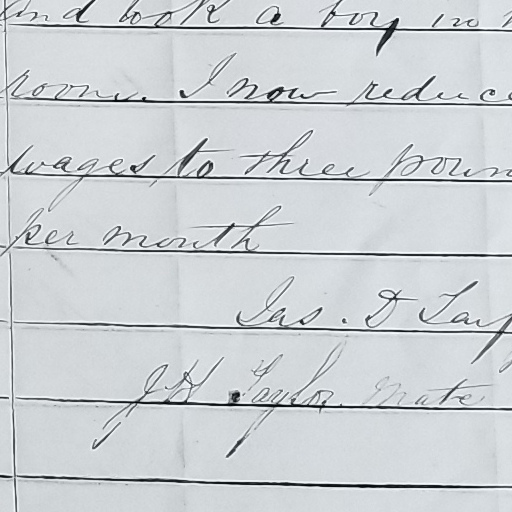 and took a boy in
room. I now reduce
wages to three poun
per month
Jas. D Tay
J H Taylor. Mate